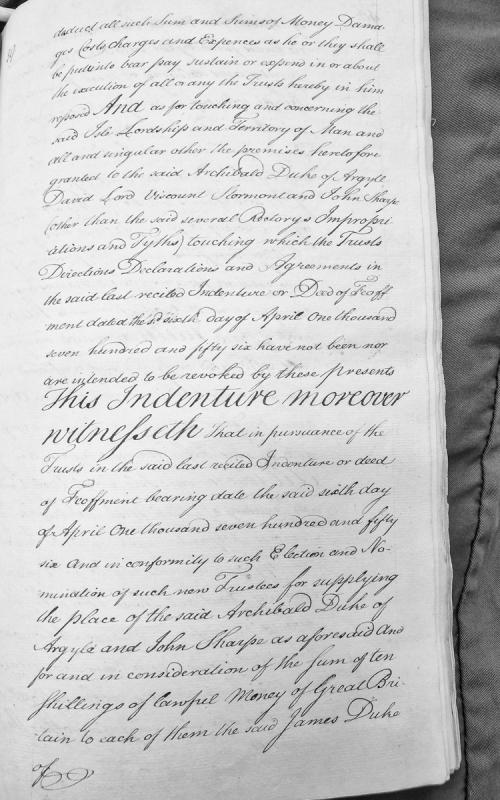 deduct all such Sum and Sums of Money Dama-
ges Costs Charges and Expences as he or they shall
be put into bear pay sustain or expend in or about
the execution of all or any the Trusts hereby in him
reposed And as for touching and concerning the
said Isle Lordship and Territory of Man and
all and singular other the premises heretofore
granted to the said Archibald Duke of Argyll
David Lord Viscount Stormont and John Sharpe
(other than the said several Rectorys Impropri-
ations and Tyths) touching which the Trusts
Directions Declarations and Agreements in
the said last recited Indenture or Deed of Feoff
ment dated the sd. sixth day of April One thousand
seven hundred and fifty six have not been nor
are intended to be revoked by these presents
This Indenture moreover
witnesseth That in pursuance of the
Trusts in the said last recited Indenture or deed
of Feoffment bearing date the said sixth day
of April One thousand seven hundred and fifty
six And in conformity to such Election and No-
mination of such new Trustees for supplying
the place of the said Archibald Duke of
Argyle and John Sharpe as aforesaid and
for and in consideration of the sum of ten
shillings of lawful Money of Great Bri-
tain to each of them the said James Duke
of